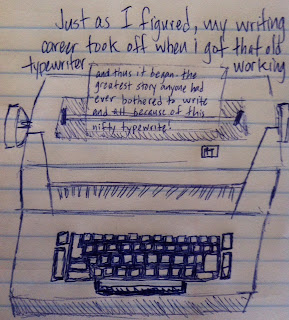 Just as I figured, my writing
career took off when I got that old
typewriter working
and thus it began. the
greatest story anyone had
ever bothered to write
and all because of this
nifty typewriter!